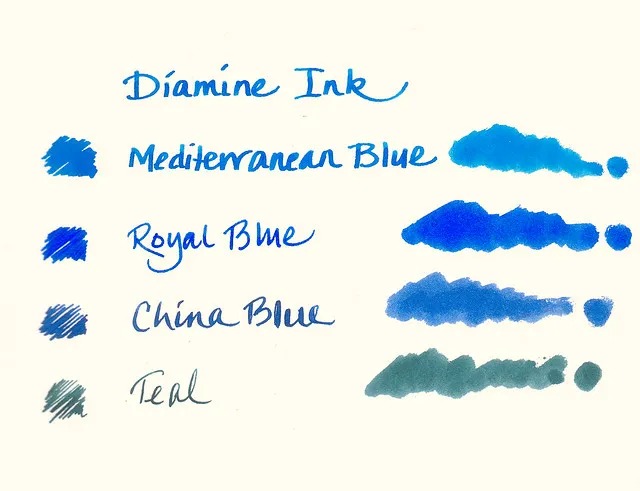 Diamine Ink
Mediterranean Blue
Royal Blue
China Blue
Teal